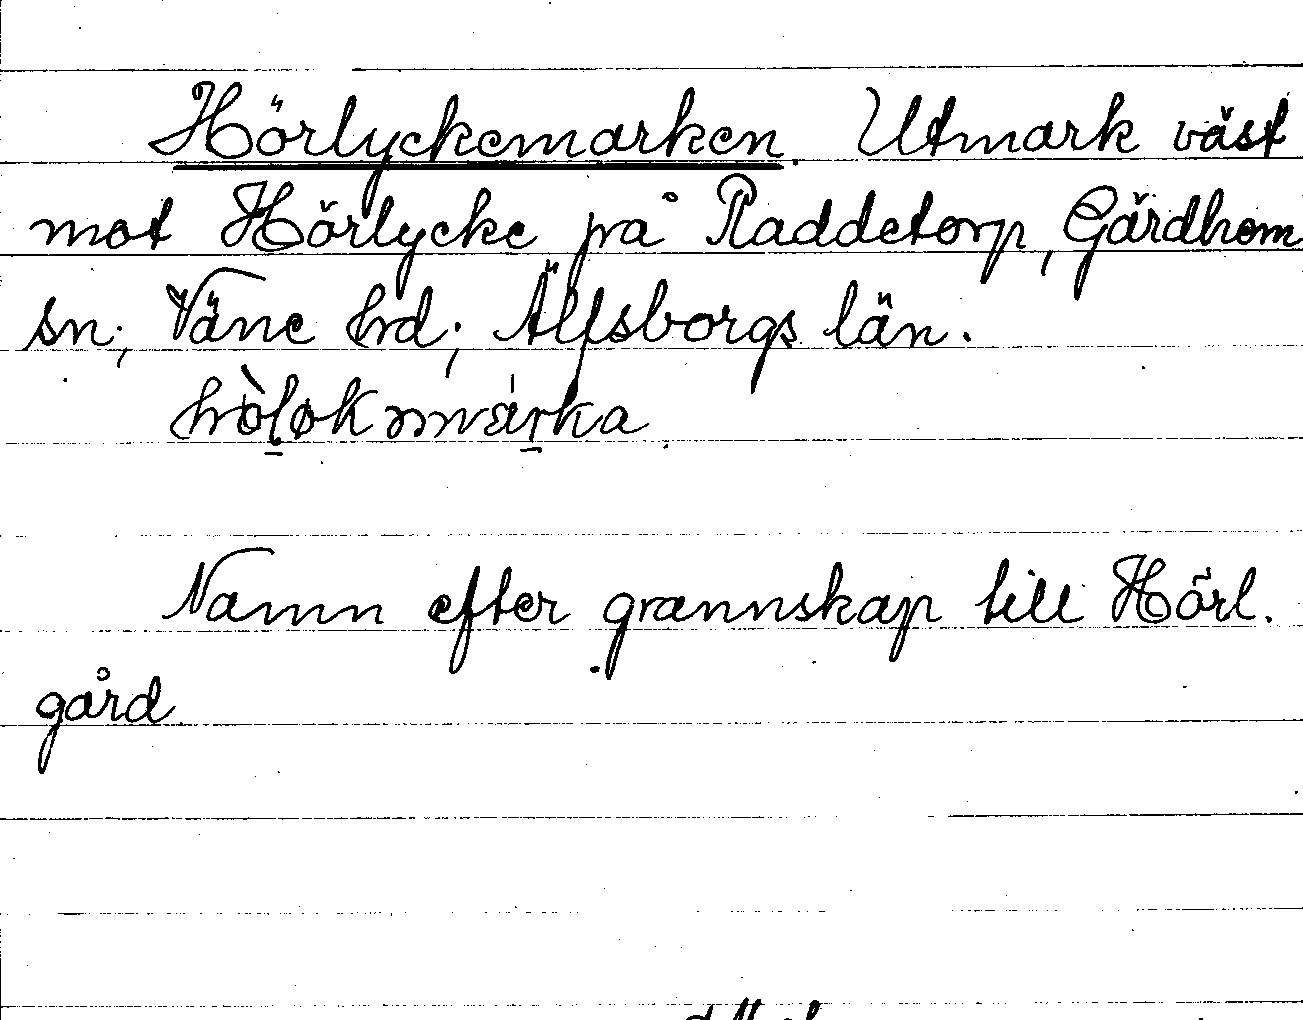 Hörlyckemarken. Utmark väst
mot Hörlycke på Raddetorp, Gärdhem
sn; Väne hd; Älfsborgs län.
Namn efter grannskap till Hörl.
gård